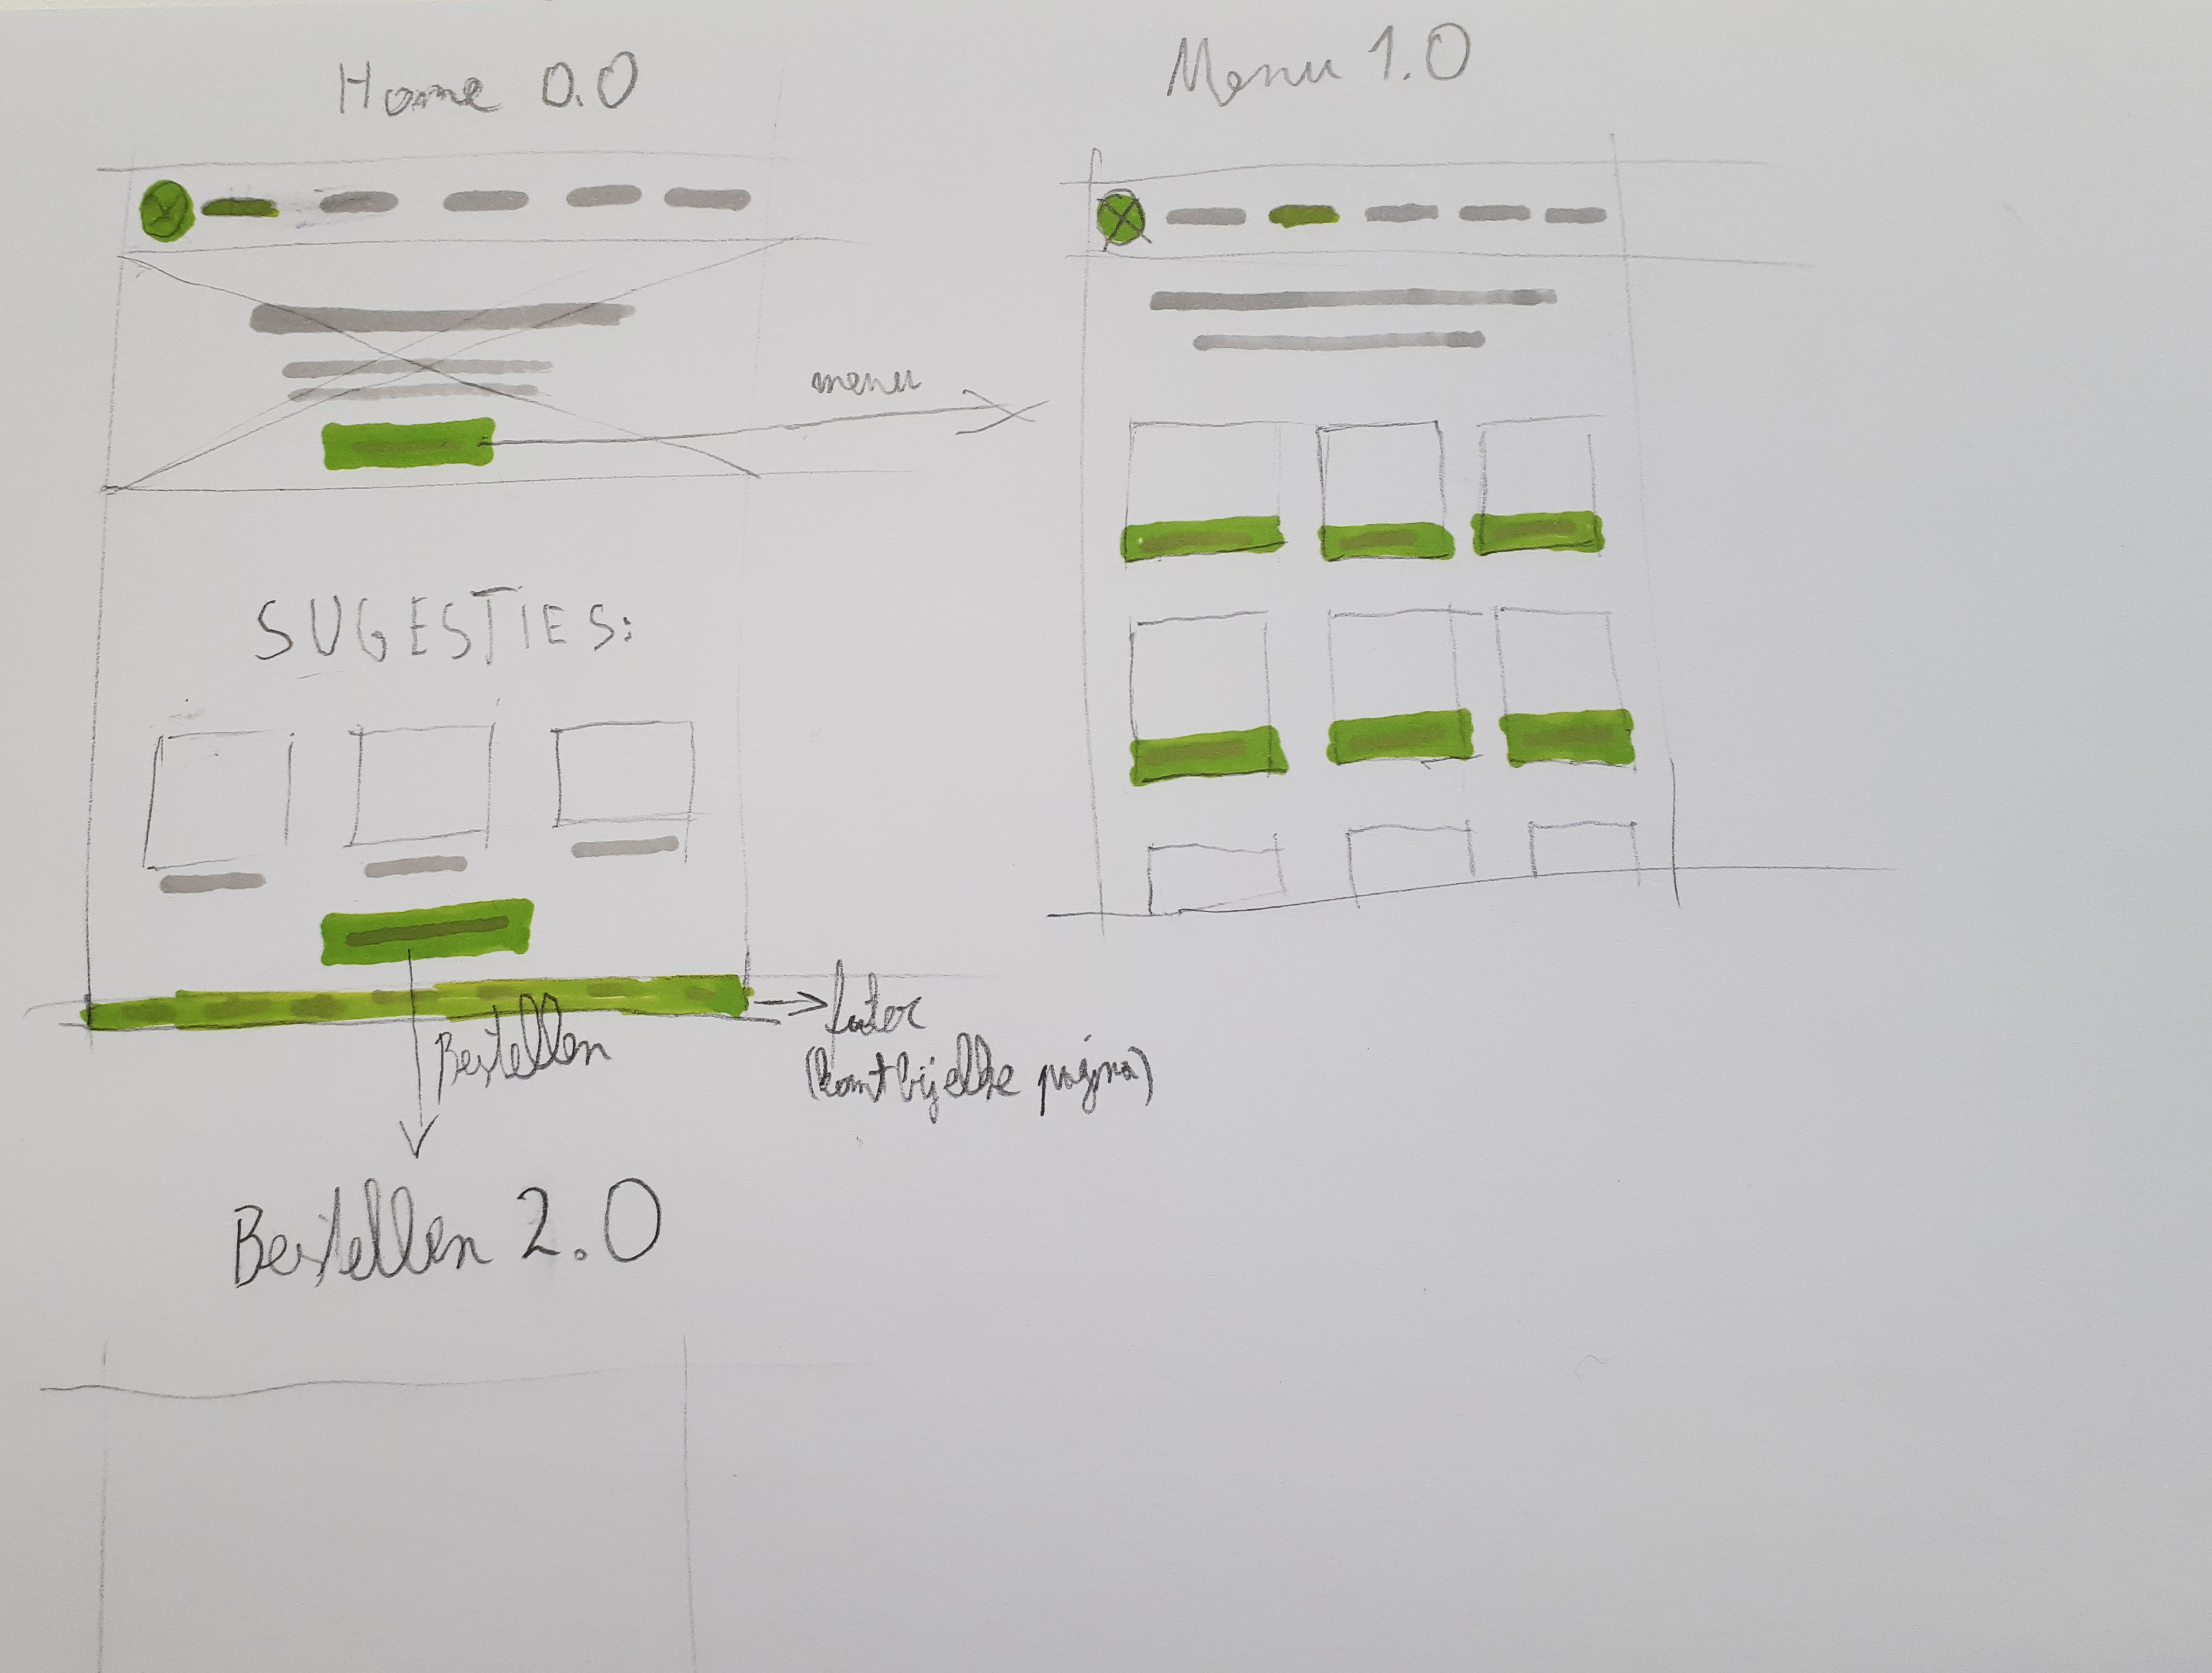 Home 0.0
Menu 1.0
menu
SUGESTIES:
Bestellen
footer
(komt bij elke pagina)
Bestellen 2.0